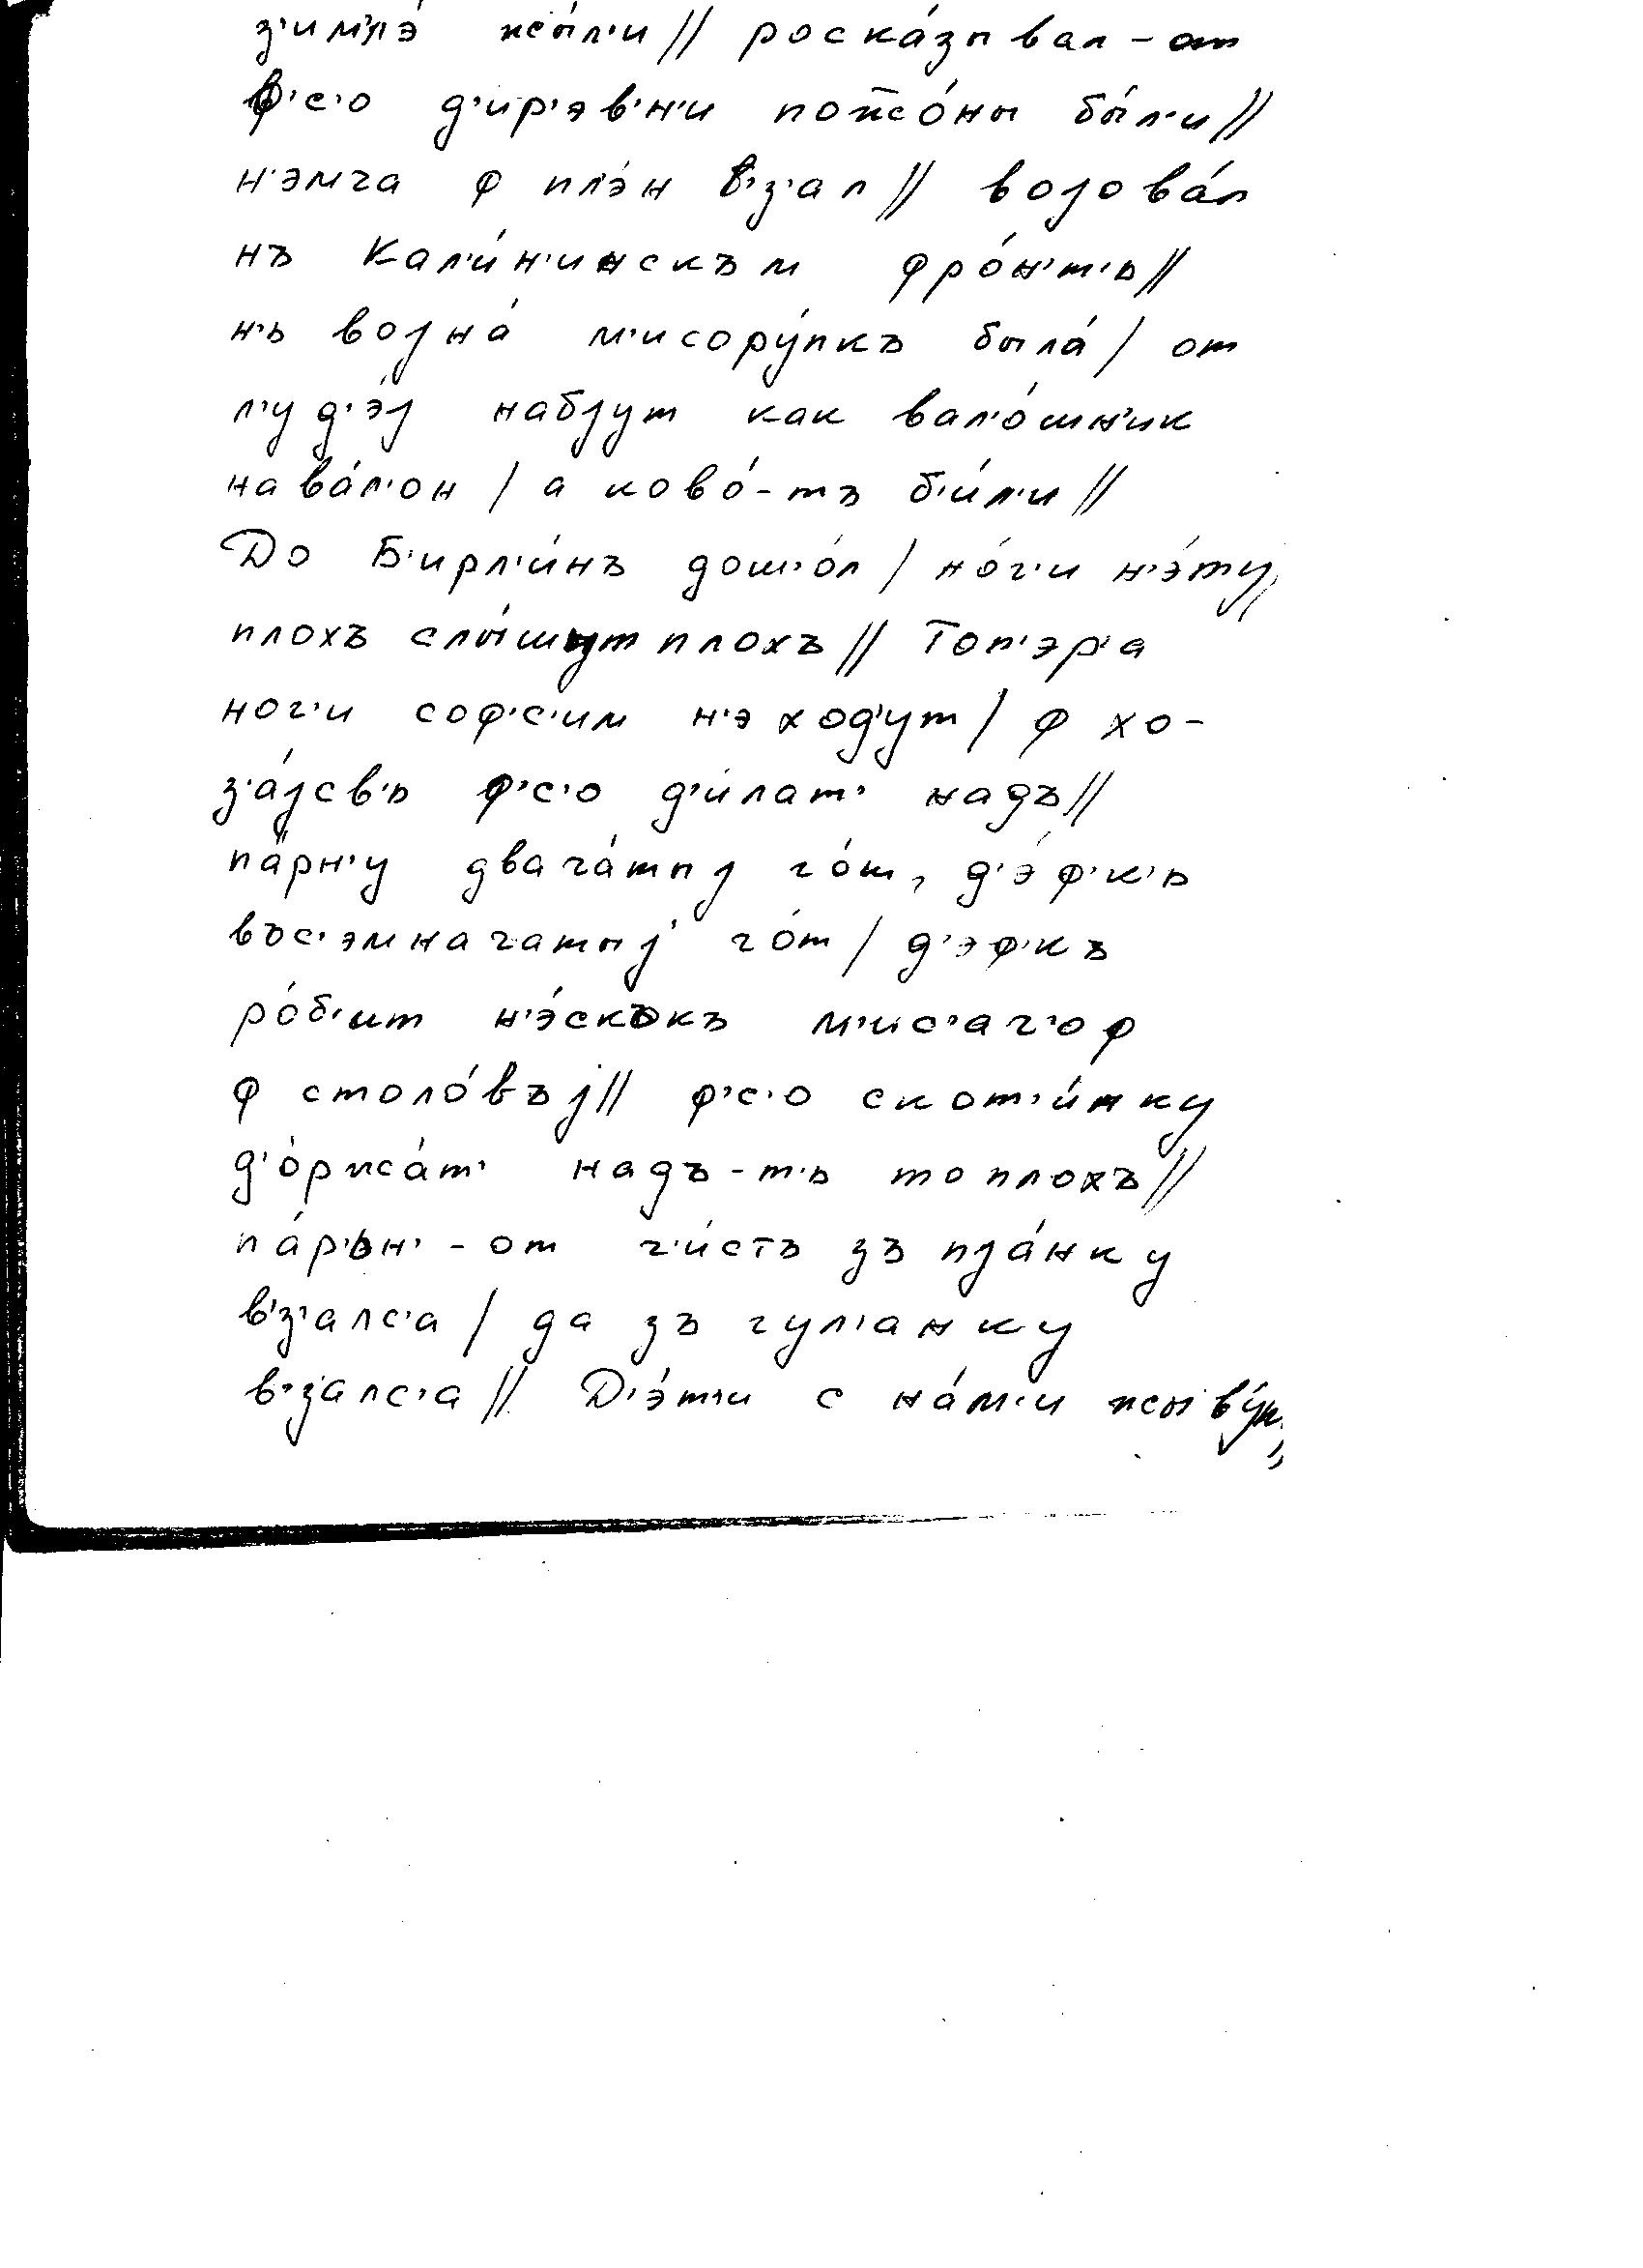 з'имл'э́ жы́л'и // роска́зывал - от
ф'с'о д'ир'эв'н'и пожжо́ны бы́л'и //
н'эмча ф пл'э́н в'з'ал // војова́л
нъ Кал'и́н'инскъм фро́н'т'ь //
н'ь војна́ м'исору́пкъ была́ / от
л'уд'э́ј набјут как вал'о́шн'ик
нава́л'он / а ково́-тъ б'и́л'и //
До Б'ирл'и́нъ дош'о́л / но́г'и н'э́ту,
плохъ слы́шут плохъ // Топ'эр'а
ног'и соф'с'им н'э ход'ут / ф хо-
з'а́јсв'ь ф'с'о д'и́лат' надъ //
па́рн'у двача́тыј го́т, д'э́ф'к'ь
въс'эмначатыј го́т / д'эф'къ
ро́б'ит н'э́скъкъ м'ис'аг'оф
ф столо́въј // ф'с'о скот'и́нку
д'о́ржа́т' надъ-т'ь то плохъ //
па́р'ьн' - от ч'и́стъ зъ пја́нку
в'з'алс'а / да зъ гул'анку
в'з'алс'а // Д'э́т'и с на́м'и жыву́т